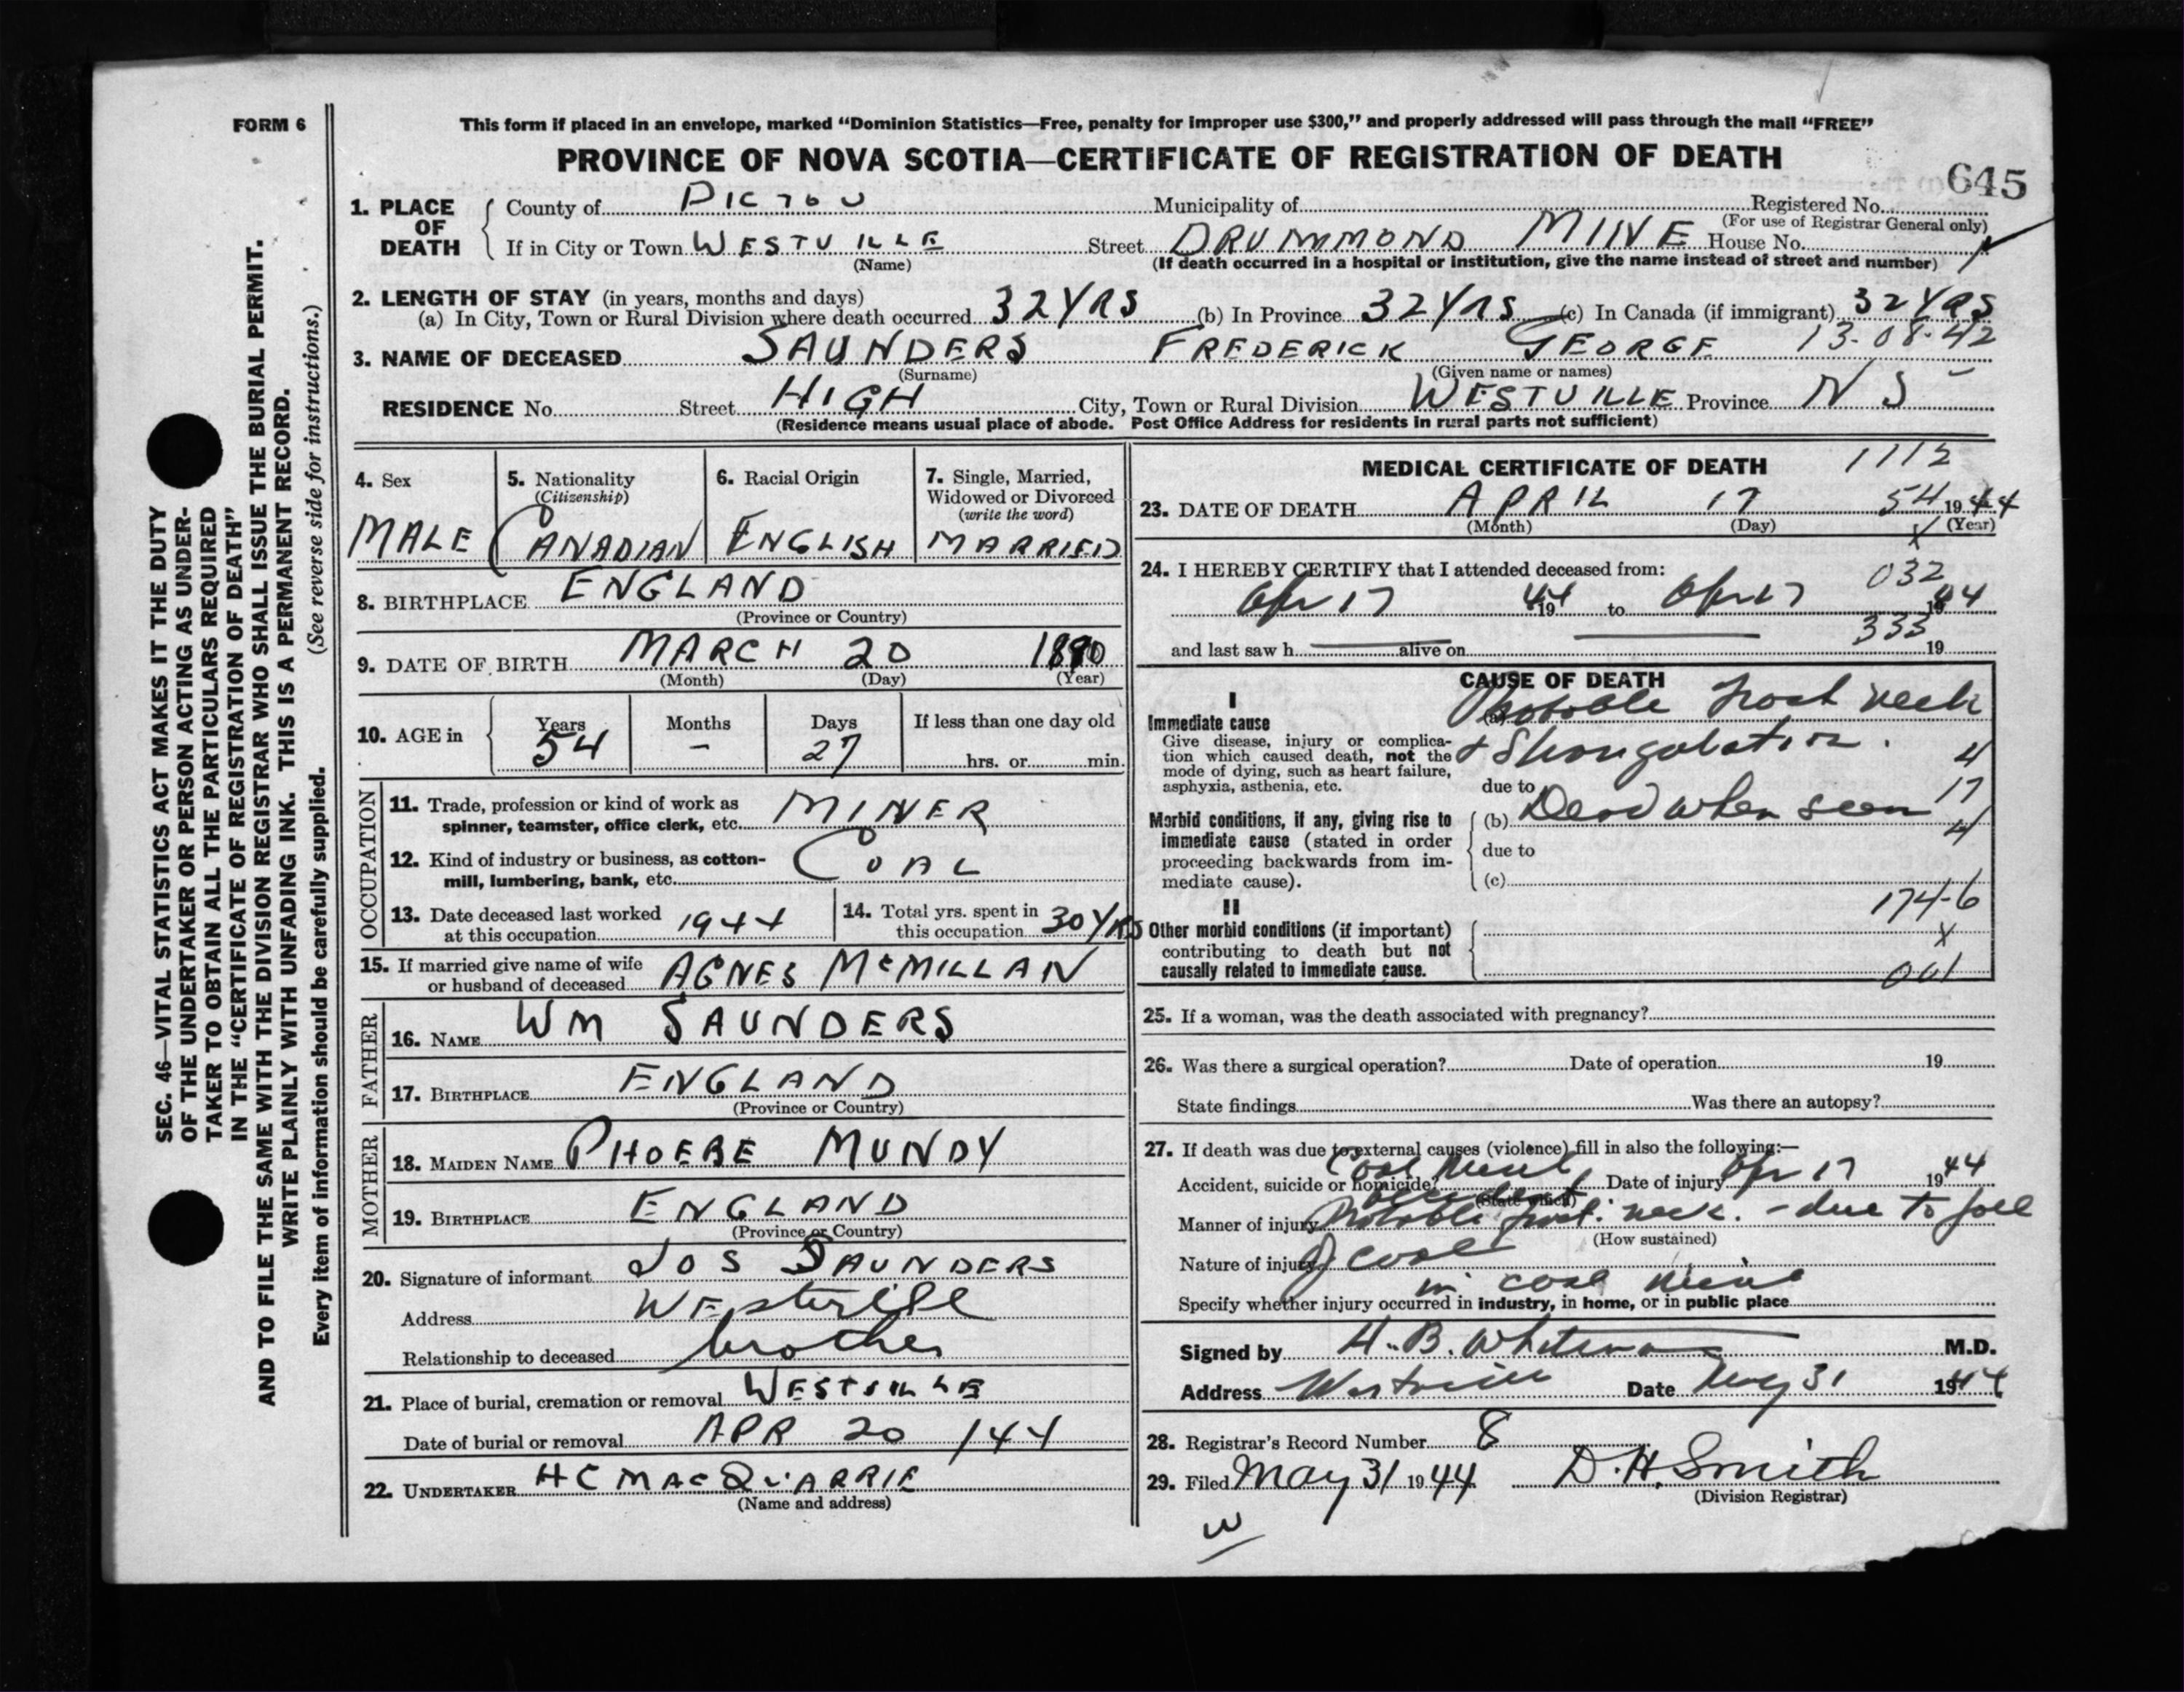 FORM 6
This form if placed in an envelope, marked “Dominion Statistics—Free, penalty for improper use $300,” and properly addressed will pass through the mail “FREE”
PROVINCE OF NOVA SCOTIA—CERTIFICATE OF REGISTRATION OF DEATH
645
1. PLACE OF DEATH
County of PICTOU Municipality of Registered No.
(For use of Registrar General only)
If in City or Town WESTVILLE Street DRUMMOND MINE House No.
(Name) (If death occurred in a hospital or institution, give the name instead of street and number)
2. LENGTH OF STAY (in years, months and days)
(a) In City, Town or Rural Division where death occurred 32 YRS (b) In Province 32 YRS (c) In Canada (if immigrant) 32 YRS
3. NAME OF DECEASED SAUNDERS FREDERICK GEORGE 13-08-42
(Surname) (Given name or names)
RESIDENCE No. Street HIGH City, Town or Rural Division WESTVILLE Province N S
(Residence means usual place of abode. Post Office Address for residents in rural parts not sufficient)
4. Sex MALE
5. Nationality (Citizenship) CANADIAN
6. Racial Origin ENGLISH
7. Single, Married, Widowed or Divorced (write the word) MARRIED
8. BIRTHPLACE ENGLAND
(Province or Country)
9. DATE OF BIRTH MARCH 20 1890
(Month) (Day) (Year)
10. AGE in Years 54 Months - Days 27 If less than one day old hrs. or min.
OCCUPATION
11. Trade, profession or kind of work as spinner, teamster, office clerk, etc. MINER
12. Kind of industry or business, as cotton-mill, lumbering, bank, etc. COAL
13. Date deceased last worked at this occupation 1944
14. Total yrs. spent in this occupation 30 YRS
15. If married give name of wife or husband of deceased AGNES McMILLAN
FATHER
16. NAME WM SAUNDERS
17. BIRTHPLACE ENGLAND
(Province or Country)
MOTHER
18. MAIDEN NAME PHOEBE MUNDY
19. BIRTHPLACE ENGLAND
(Province or Country)
20. Signature of informant JOS SAUNDERS
Address Westville
Relationship to deceased brother
21. Place of burial, cremation or removal WESTVILLE
Date of burial or removal APR 20 /44
22. UNDERTAKER H C MACQUARRIE
(Name and address)
MEDICAL CERTIFICATE OF DEATH 1112
23. DATE OF DEATH APRIL 17 54 1944
(Month) (Day) (Year)
X
24. I HEREBY CERTIFY that I attended deceased from: 032
Apr 17 1944 to Apr 17 1944
333
and last saw h alive on 19
CAUSE OF DEATH
I
Immediate cause
Give disease, injury or complication which caused death, not the mode of dying, such as heart failure, asphyxia, asthenia, etc.
(a) Probable fract neck
+ Strangulation. 4
due to
17
Morbid conditions, if any, giving rise to immediate cause (stated in order proceeding backwards from immediate cause).
(b) Dead when seen 4
due to
(c)
174-6
II
Other morbid conditions (if important) contributing to death but not causally related to immediate cause.
X
001
25. If a woman, was the death associated with pregnancy?
26. Was there a surgical operation? Date of operation 19
State findings Was there an autopsy?
27. If death was due to external causes (violence) fill in also the following:—
Accident, suicide or homicide? Coal Mine accident Date of injury Apr 17 1944
(State which)
Manner of injury Probable fract. neck. - due to fall
(How sustained)
Nature of injury of coal
in coal mine
Specify whether injury occurred in industry, in home, or in public place
Signed by H. B. Whitman M.D.
Address Westville Date May 31 1944
28. Registrar's Record Number 8
29. Filed May 31 1944 D. H. Smith
(Division Registrar)
W
SEC. 46—VITAL STATISTICS ACT MAKES IT THE DUTY
OF THE UNDERTAKER OR PERSON ACTING AS UNDER-
TAKER TO OBTAIN ALL THE PARTICULARS REQUIRED
IN THE “CERTIFICATE OF REGISTRATION OF DEATH”
AND TO FILE THE SAME WITH THE DIVISION REGISTRAR WHO SHALL ISSUE THE BURIAL PERMIT.
WRITE PLAINLY WITH UNFADING INK. THIS IS A PERMANENT RECORD.
Every item of information should be carefully supplied. (See reverse side for instructions.)